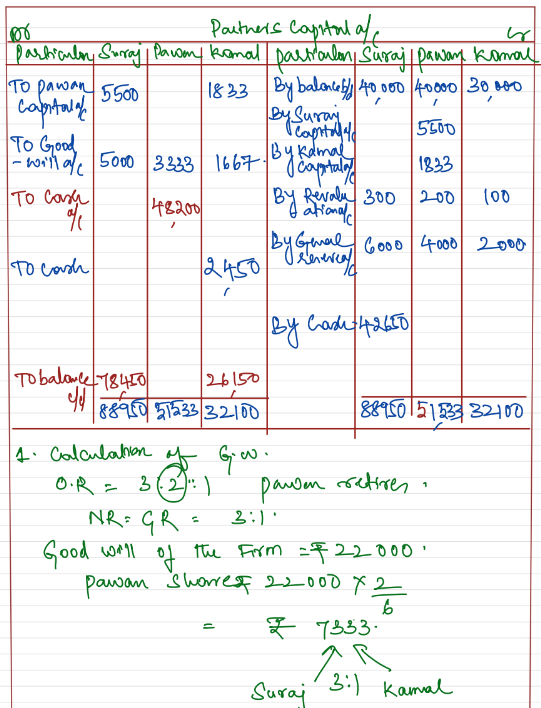 Dr Partners Capital a/c Cr
Particulars Suraj Pawan Kamal Particulars Suraj Pawan Kamal
To pawan capital a/c 5500 1833 By balance b/d 40,000 40,000 30,000
By Suraj capital a/c 5500
To Good-will a/c 5000 3333 1667 By Kamal capital a/c 1833
To Cash a/c 48200 By Revaluation a/c 300 200 100
By General reserve a/c 6000 4000 2000
To cash 2450
By Cash 42650
To balance c/d 78450 26150
88950 51533 32100 88950 51533 32100
1. Calculation of G.W.
O.R = 3:2:1 pawan retires.
NR = GR = 3:1.
Good will of the Firm = ₹ 22000.
pawan share ₹ 22000 × 2/6
= ₹ 7333.
Suraj 3:1 Kamal